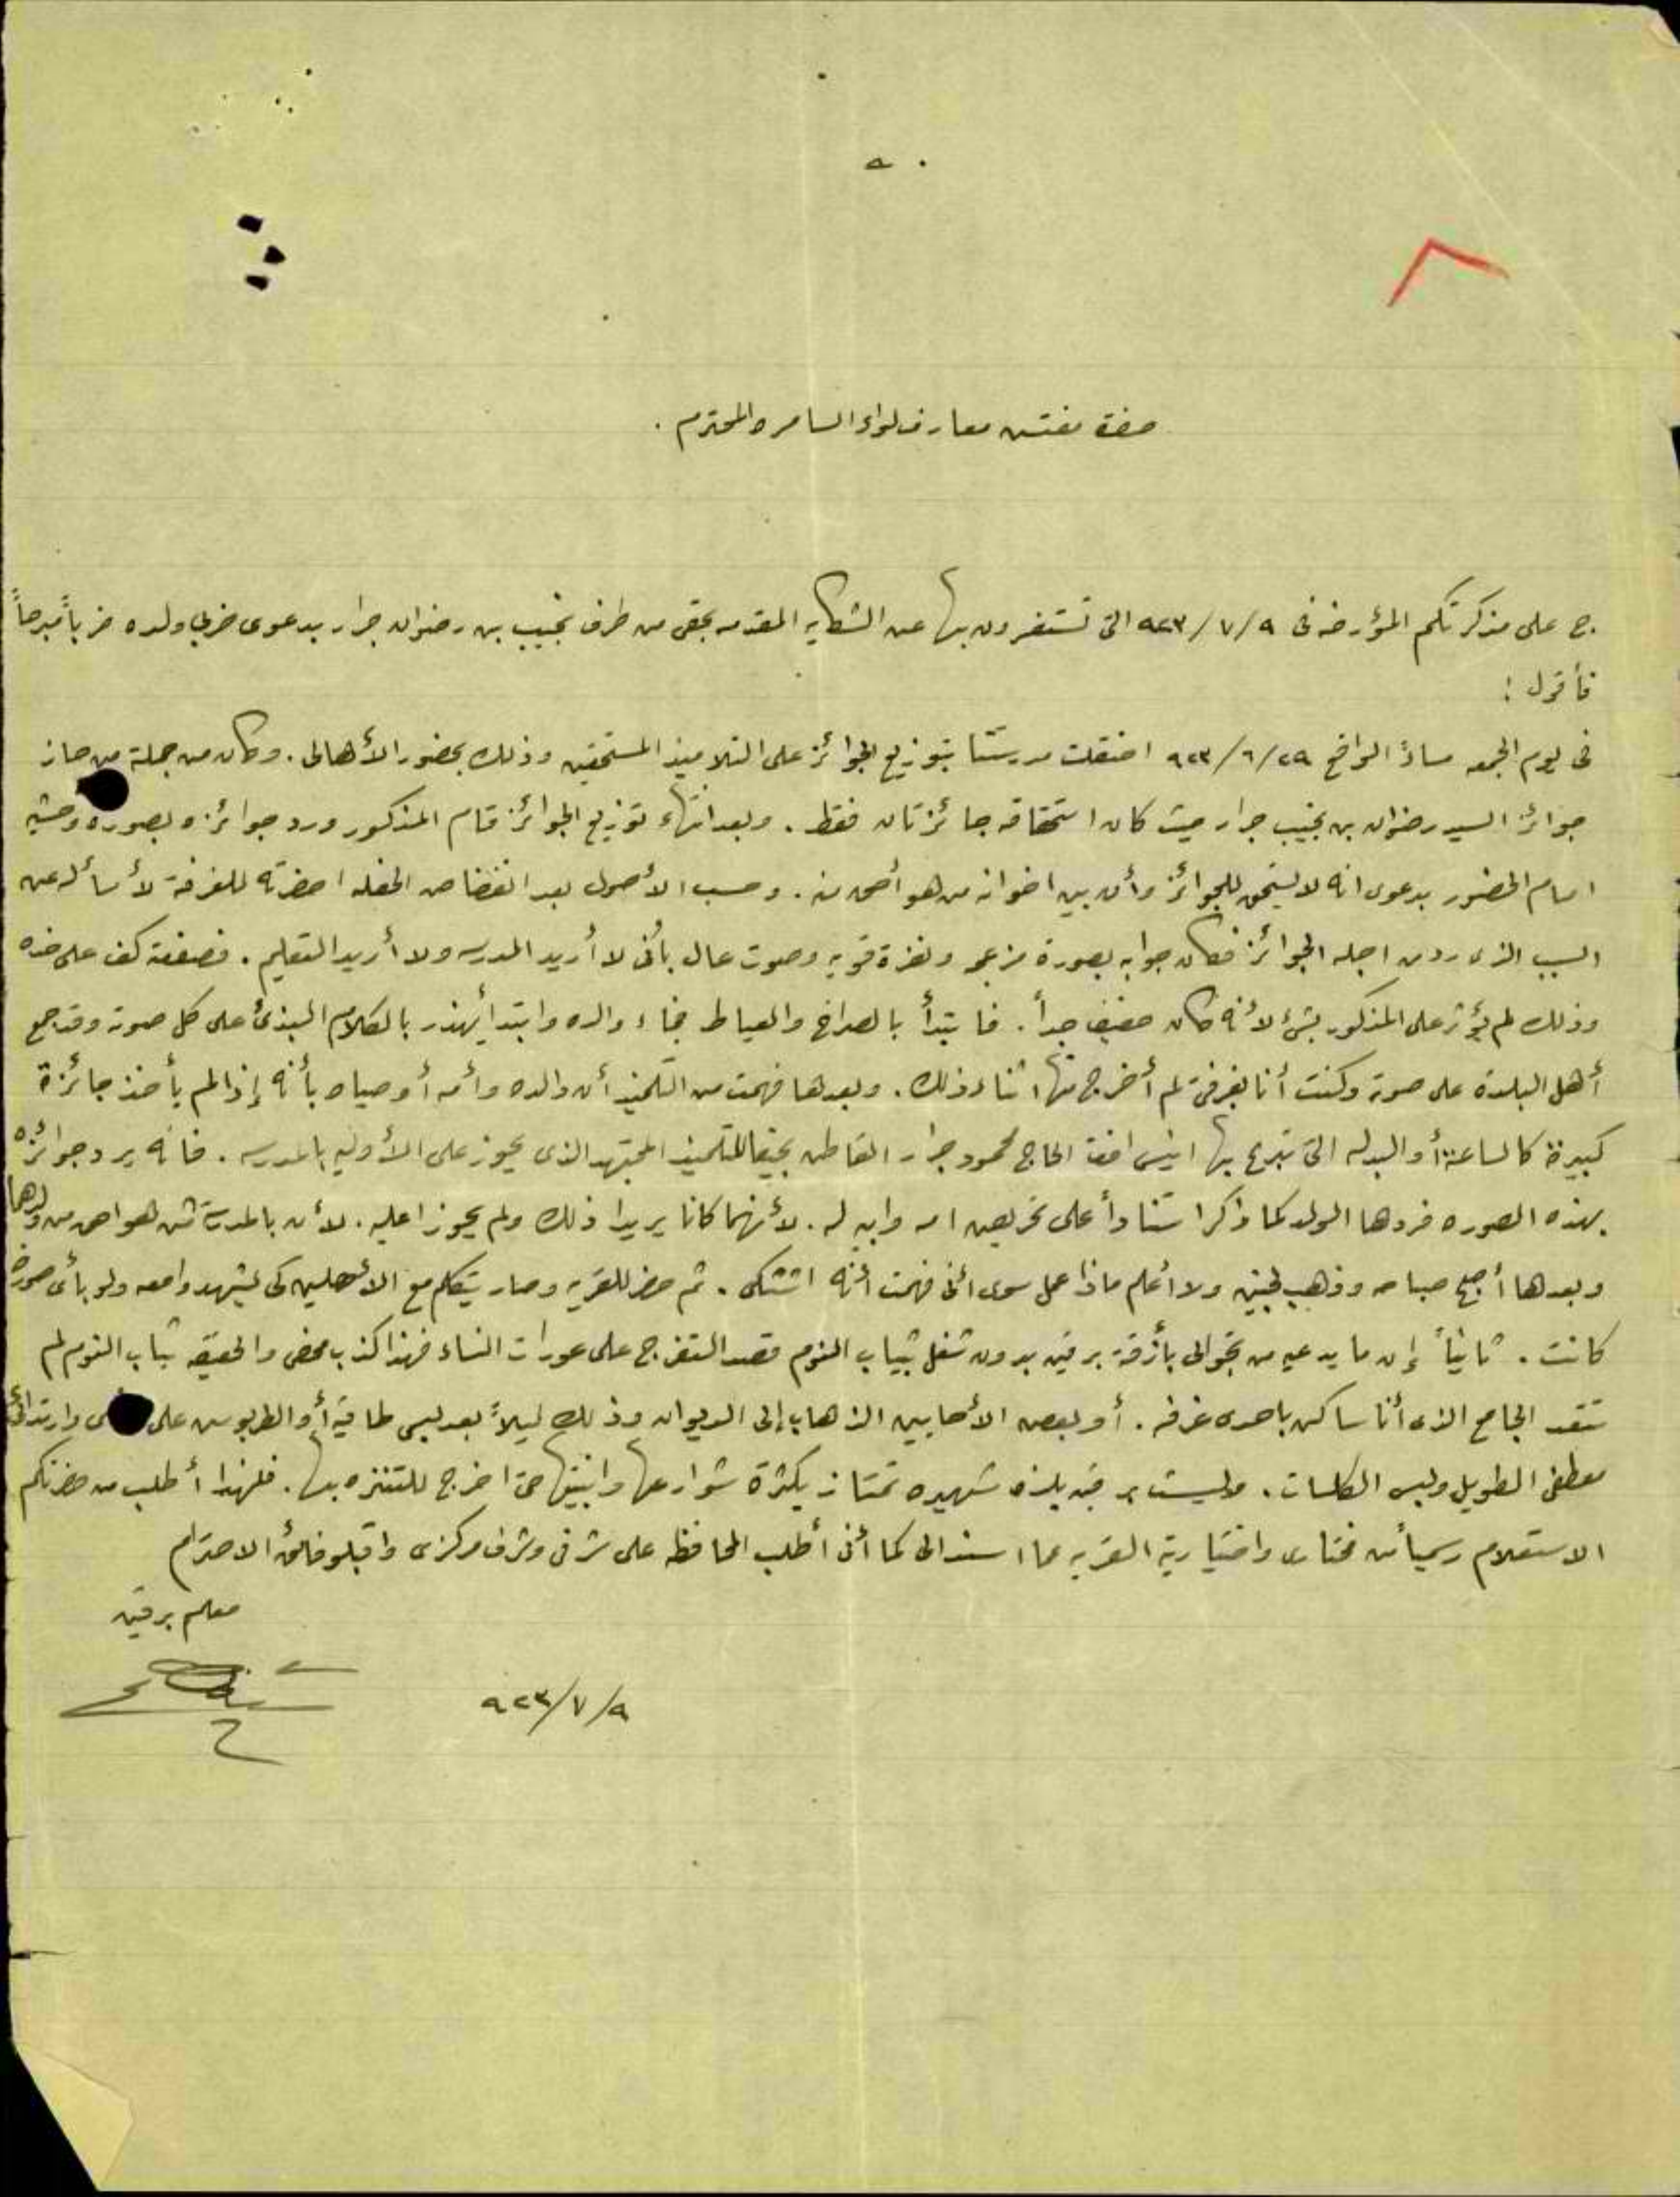 حضرة مفتش معارف لواء السامره المحترم .
ج على مذكرتكم المؤرخه فى ٩/٧/٩٢٣ التى تستفسرون بها عن الشكايه المقدمه بحقى من طرف نجيب بن رضوان جرار بدعوى ضربى ولده ضرباً مبرحاً
فأقول :
فى يوم الجمعه مساءً الواقع ٢٩/٦/٩٢٣ احتفلت مدرستنا بتوزيع الجوائز على التلاميذ المستحقين وذلك بحضور الأهالى . وكان من جملة من حاز
جوائز السيد رضوان بن نجيب جرار حيث كان استحقاقه جائزتان فقط . وبعد انتهاء توزيع الجوائز قام المذكور ورد جوائزه بصوره وحشيه
امام الحضور بدعوى انه لا يستحق للجوائز وأن بين اخوانه من هو أحق منه . وحسب الأصول بعد انفضاض الحفله احضرته للغرفة لأسأله عن
السبب الذى رد من اجله الجوائز فكان جوابه بصورة مزعجه ونفرة قويه وصوت عال بأنى لا أريد المدرسه ولا أريد التعليم . فصفعته كف على خده
وذلك لم يؤثر على المذكور بشئ لأنه كان خفيف جداً . فابتدأ بالصراخ والعياط فجاء والده وابتدأ يهذر بالكلام البذئ على كل صوته وقد جمع
أهل البلدة على صوته وكنت أنا بغرفتى لم أخرج منها اثناء ذلك . وبعدها فهمت من التلميذ أن والده وأمه أوصياه بأنه إذا لم يأخذ جائزة
كبيرة كالساعة أو البدله التى تبرع بها انيس افندى الحاج محمود جرار القاطن بحيفا للتلميذ المجتهد الذى يحوز على الأوليه بالمدرسه . فانه يرد جوائزه
بهذه الصوره فردها الولد كما ذكر استناداً على تحريض امه وابيه له . لأنهما كانا يريدا ذلك ولم يحوزا عليه . لأن بالمدرسة من هو احق من ولدها
وبعدها أصبح صباحه وذهب لجنين ولا أعلم ماذا عمل سوى أنى فهمت أنه اشتكى . ثم حضر للقريه وصار يتكلم مع الأهلين كى يشهدوا معه ولو بأى صورة
كانت . ثانياً إن ما يدعيه من تجوالى بأزقة برقين بدون شغل بثياب النوم قصد التفرج على عورات النساء فهذا كذب محض والحقيقه ثياب النوم لم
تتعد الجامع الذى أنا ساكن باحدى غرفه . أو بعض الأحايين الذهاب إلى الديوان وذلك ليلاً بعد لبس طاقية أو الطربوش على وارتدائى
معطفى الطويل ولبس الكلسات . وليست برقين بلده شهيره تمتاز بكثرة شوارعها وابنيتها حتى اخرج للتنزه بها . فلهذا أطلب من حضرتكم
الاستعلام رسمياً من مختارى واختيارية القريه عما اسند الى كما أنى أطلب المحافظه على شرفى وشرف مركزى واقبلو فائق الاحترام
معلم برقين
٩/٧/٩٢٣